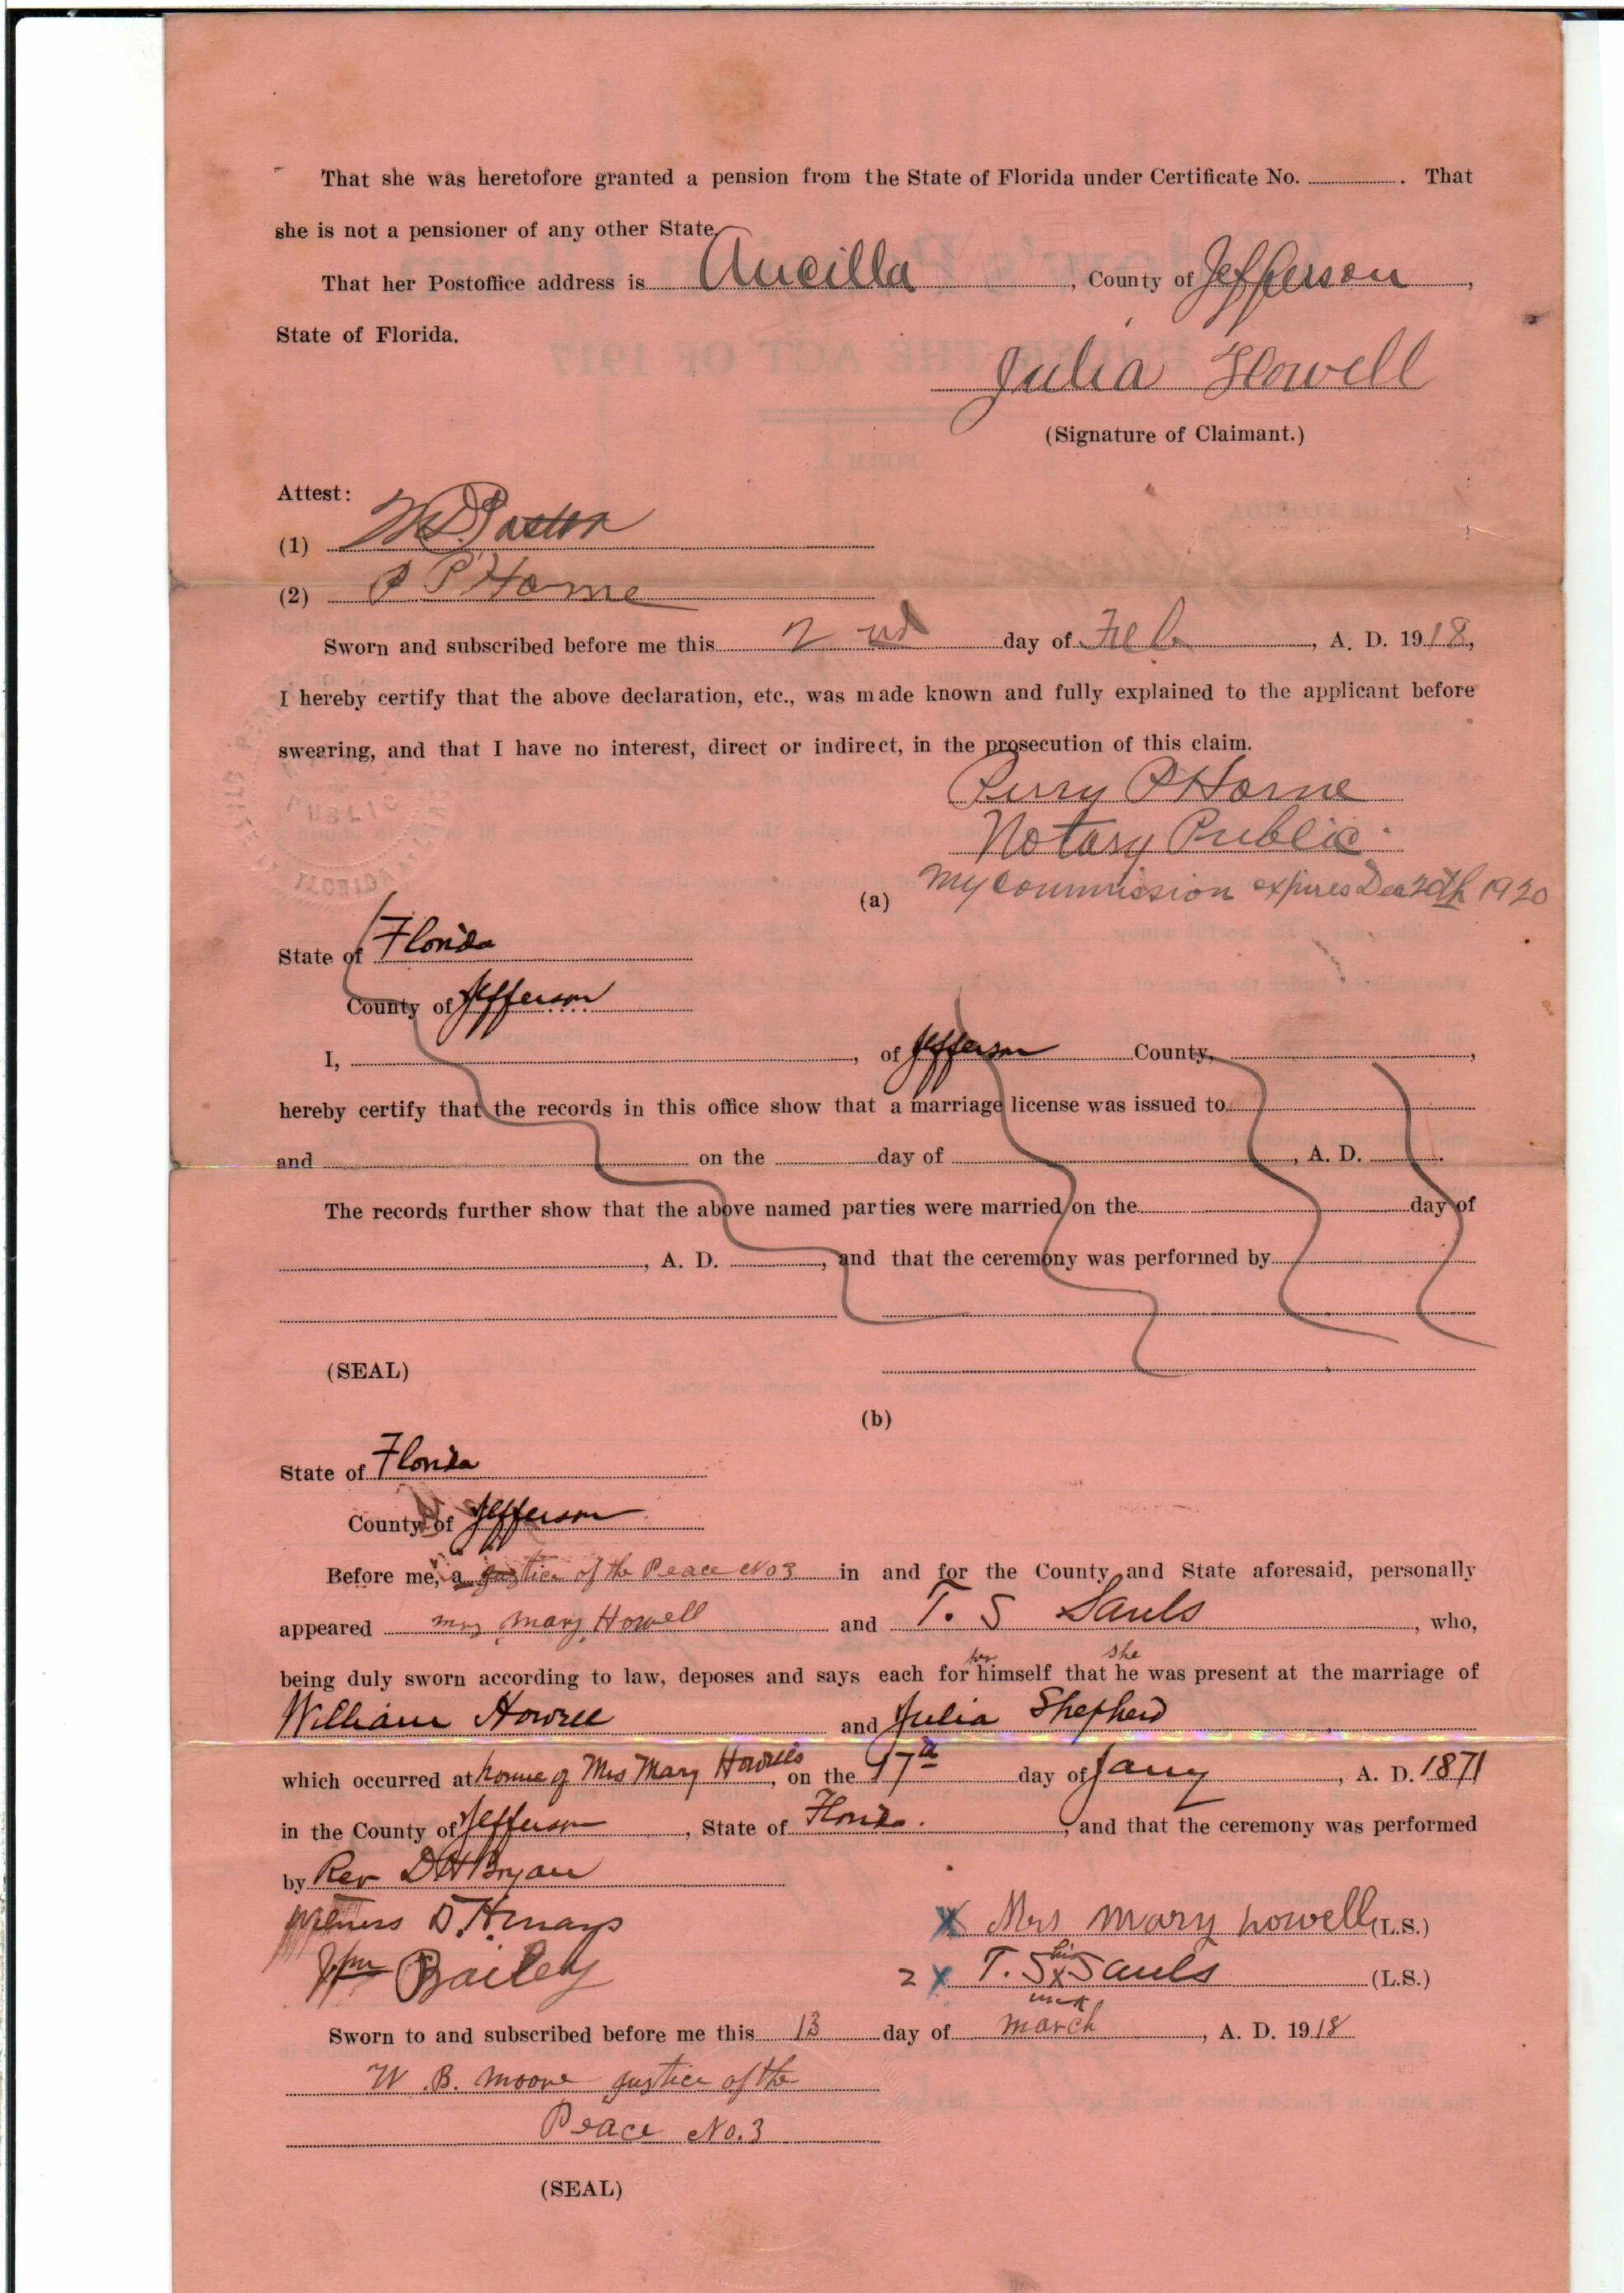 That she was heretofore granted a pension from the State of Florida under Certificate No. ............ . That
she is not a pensioner of any other State.
That her Postoffice address is Aucilla, County of Jefferson,
State of Florida.
Julia Howell
(Signature of Claimant.)
Attest:
(1)
(2) P P Horne
Sworn and subscribed before me this 2nd day of Feb, A. D. 1918,
I hereby certify that the above declaration, etc., was made known and fully explained to the applicant before
swearing, and that I have no interest, direct or indirect, in the prosecution of this claim.
Perry P Horne
Notary Public
My Commission expires Dec 20th 1920
(a)
State of Florida
County of Jefferson
I, ............, of Jefferson County, ............,
hereby certify that the records in this office show that a marriage license was issued to ............
and ............ on the ............ day of ............, A. D. ............
The records further show that the above named parties were married on the ............ day of
............, A. D. ............, and that the ceremony was performed by ............
(SEAL)
(b)
State of Florida
County of Jefferson
Before me, a Justice of the Peace No 3 in and for the County and State aforesaid, personally
appeared Mrs Mary Howell and T. S Sauls, who,
her she
being duly sworn according to law, deposes and says each for himself that he was present at the marriage of
William Howell and Julia Shepherd
which occurred at home of Mrs Mary Howells, on the 17th day of Jany, A. D. 1871
in the County of Jefferson, State of Florida., and that the ceremony was performed
by Rev D H Bryan
Witness D. H. Mays
Mrs Mary howell (L.S.)
Bailey
2 X T. S his X mark Sauls (L.S.)
Sworn to and subscribed before me this 13 day of March, A. D. 1918
W. B. Moore Justice of the
Peace No. 3
(SEAL)